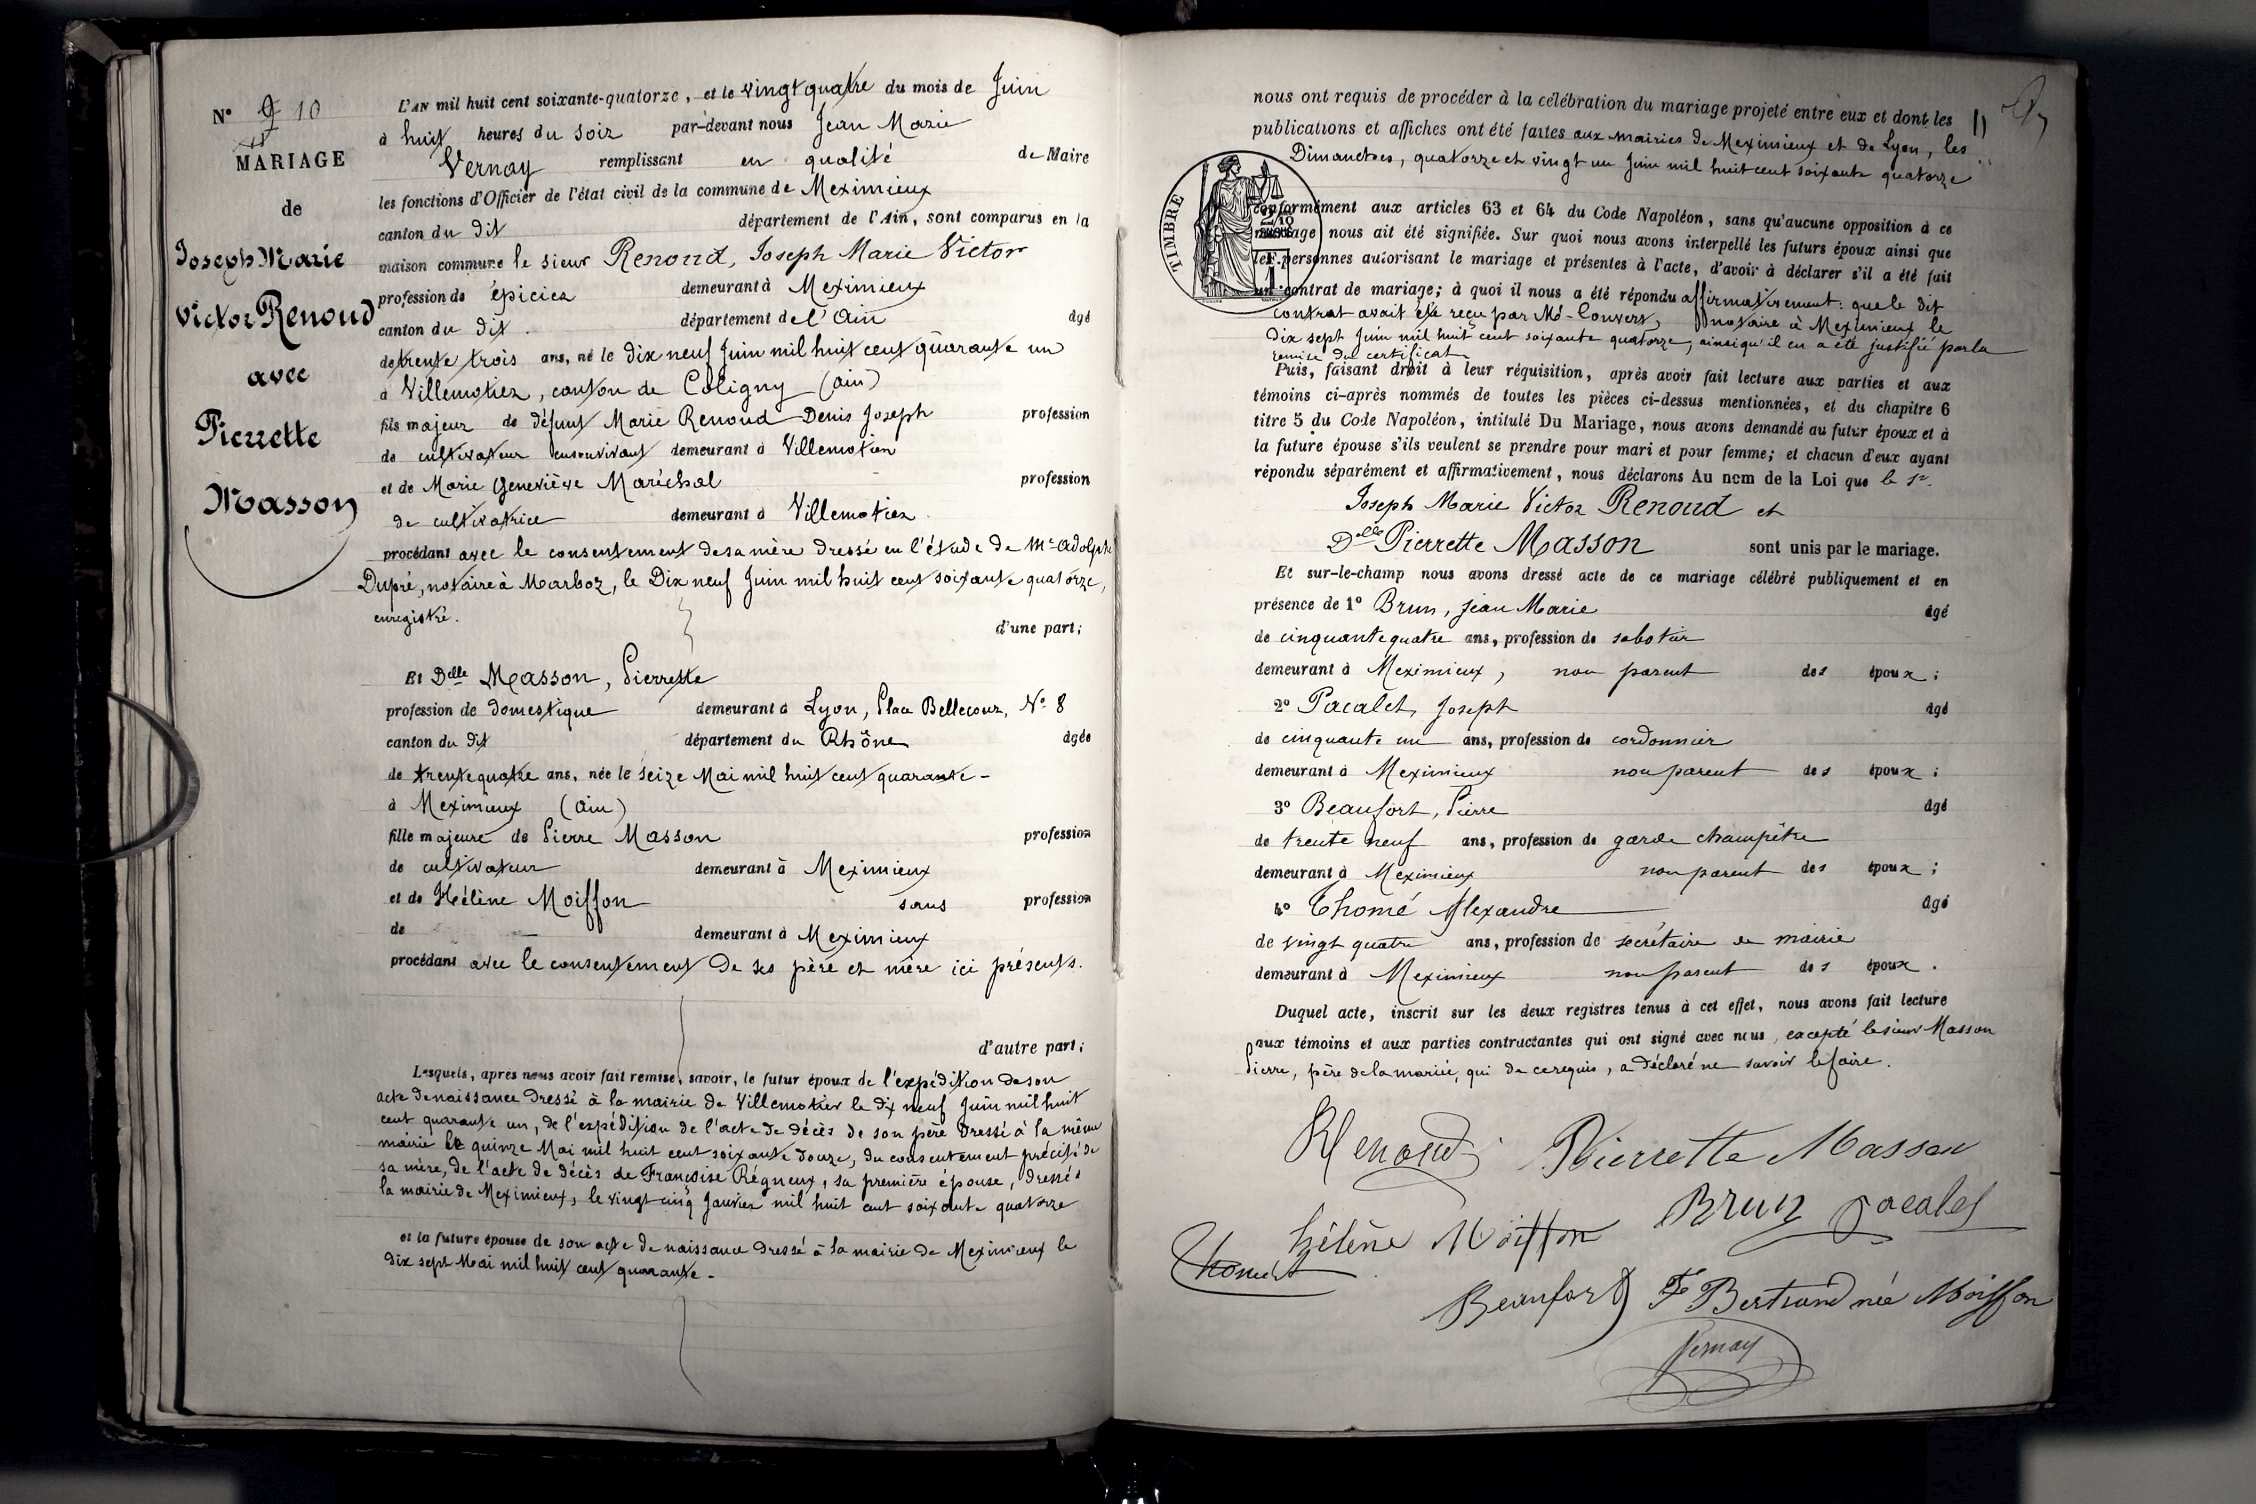 N° 9 10
MARIAGE
de
Joseph Marie
Victor Renoud
avec
Pierrette
Masson
L'AN mil huit cent soixante-quatorze, et le vingt quatre du mois de Juin
à huit heures du soir par-devant nous Jean Marie
Vernay remplissant en qualité de Maire
les fonctions d'Officier de l'état civil de la commune de Meximieux
canton du dit département de l'Ain, sont comparus en la
maison commune le sieur Renoud, Joseph Marie Victor
profession de épicier demeurant à Meximieux
canton du dit département de l'Ain âgé
de trente trois ans, né le dix neuf Juin mil huit cent quarante un
à Villemotier, canton de Coligny (Ain)
fils majeur de défunt Marie Renoud Denis Joseph profession
de cultivateur en son vivant demeurant à Villemotier
et de Marie Geneviève Maréchal profession
de cultivatrice demeurant à Villemotier
procédant avec le consentement de sa mère dressé en l'étude de Me Adolphe
Dupré, notaire à Marboz, le Dix neuf Juin mil huit cent soixante quatorze,
enregistré.
d'une part;
Et Delle Masson, Pierrette
profession de domestique demeurant à Lyon, Place Bellecour, N° 8
canton du dit département du Rhône âgée
de trente quatre ans, née le seize Mai mil huit cent quarante -
à Meximieux (Ain)
fille majeure de Pierre Masson profession
de cultivateur demeurant à Meximieux
et de Hélène Moiffon sans profession
de demeurant à Meximieux
procédant avec le consentement de ses père et mère ici présents.
d'autre part;
Lesquels, après nous avoir fait remise, savoir, le futur époux de l'expédition de son
acte de naissance dressé à la mairie de Villemotier le dix neuf Juin mil huit
cent quarante un, de l'expédition de l'acte de décès de son père dressé à la même
mairie le quinze Mai mil huit cent soixante douze, du consentement précité de
sa mère, de l'acte de décès de Françoise Régneux, sa première épouse, dressé à
la mairie de Meximieux, le vingt cinq Janvier mil huit cent soixante quatorze
et la future épouse de son acte de naissance dressé à la mairie de Meximieux le
dix sept Mai mil huit cent quarante -
nous ont requis de procéder à la célébration du mariage projeté entre eux et dont les
publications et affiches ont été faites aux mairies de Meximieux et de Lyon, les
Dimanches, quatorze et vingt un Juin mil huit cent soixante quatorze
TIMBRE
conformément aux articles 63 et 64 du Code Napoléon, sans qu'aucune opposition à ce
mariage nous ait été signifiée. Sur quoi nous avons interpellé les futurs époux ainsi que
les personnes autorisant le mariage et présentes à l'acte, d'avoir à déclarer s'il a été fait
un contrat de mariage; à quoi il nous a été répondu affirmativement: que le dit
contrat avait été reçu par Me Convert, notaire à Meximieux le
dix sept Juin mil huit cent soixante quatorze, ainsi qu'il en a été justifié par la
remise du certificat
Puis, faisant droit à leur réquisition, après avoir fait lecture aux parties et aux
témoins ci-après nommés de toutes les pièces ci-dessus mentionnées, et du chapitre 6
titre 5 du Code Napoléon, intitulé Du Mariage, nous avons demandé au futur époux et à
la future épouse s'ils veulent se prendre pour mari et pour femme; et chacun d'eux ayant
répondu séparément et affirmativement, nous déclarons Au nom de la Loi que le Sr.
Joseph Marie Victor Renoud et
Delle Pierrette Masson sont unis par le mariage.
Et sur-le-champ nous avons dressé acte de ce mariage célébré publiquement et en
présence de 1° Brun, Jean Marie âgé
de cinquante quatre ans, profession de sabotier
demeurant à Meximieux, non parent des époux;
2° Pacalet, Joseph âgé
de cinquante un ans, profession de cordonnier
demeurant à Meximieux non parent des époux;
3° Beaufort, Pierre âgé
de trente neuf ans, profession de garde champêtre
demeurant à Meximieux non parent des époux;
4° Thomé Alexandre âgé
de vingt quatre ans, profession de secrétaire de mairie
demeurant à Meximieux non parent des époux.
Duquel acte, inscrit sur les deux registres tenus à cet effet, nous avons fait lecture
aux témoins et aux parties contractantes qui ont signé avec nous, excepté le sieur Masson
Pierre, père de la mariée, qui de ce requis, a déclaré ne savoir le faire.
Renoud Pierrette Masson
Brun Pacalet
hélène Moiffon
Thomé
Beaufort Fe Bertrand née Moiffon
Vernay